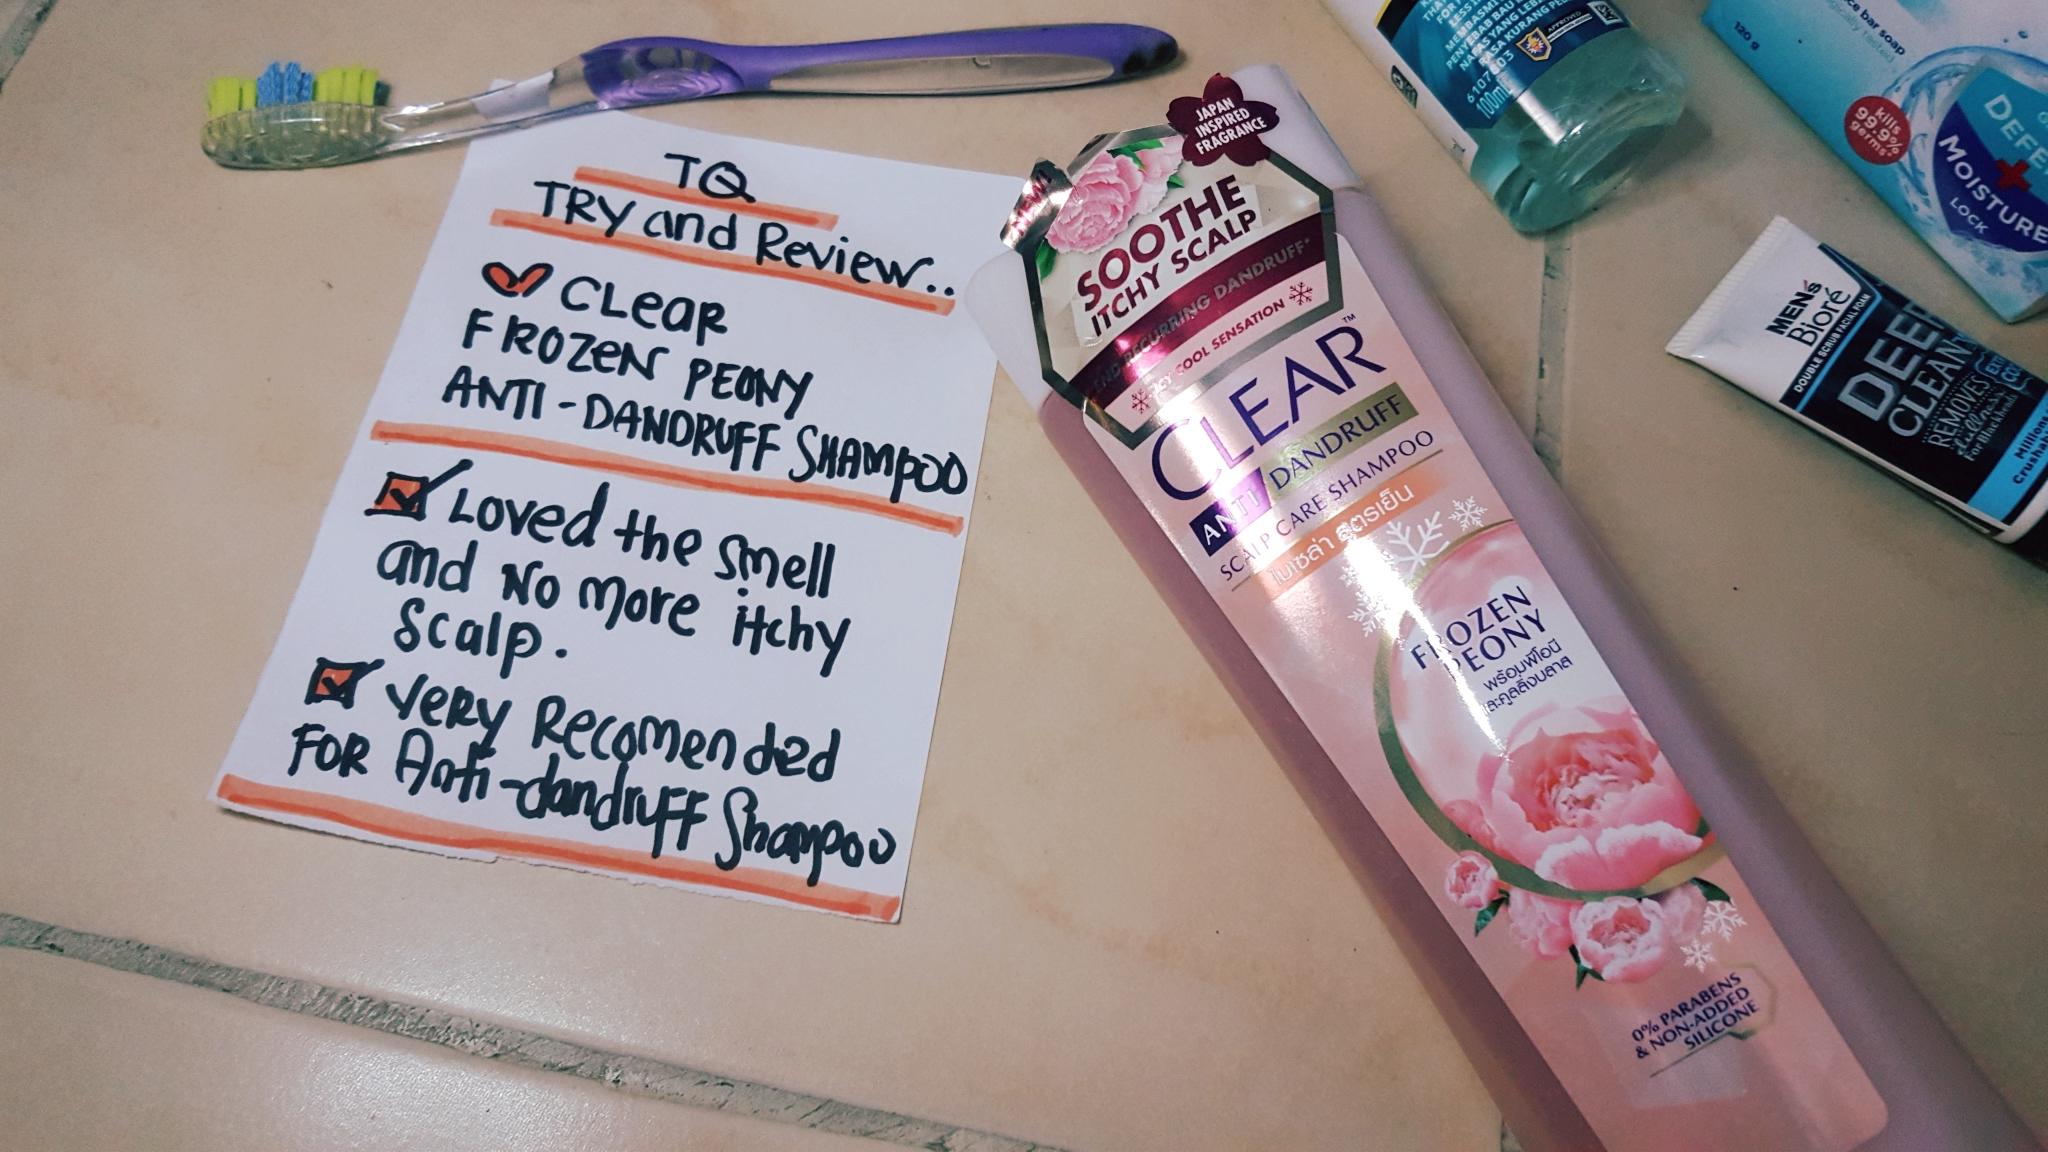 TQ
TRY and Review..
CLEAR
FROZEN PEONY
ANTI-DANDRUFF SHAMPOO
LOVED the smell
and NO more itchy
Scalp.
VERY Recomended
FOR Anti-dandruff Shampoo
JAPAN
INSPIRED
FRAGRANCE
SOOTHE
ITCHY SCALP
END RECURRING DANDRUFF*
ICY COOL SENSATION
CLEAR™
ANTI DANDRUFF
SCALP CARE SHAMPOO
ไมเซล่า สูตรเย็น
FROZEN
PEONY
พร้อมพีโอนี
และคูลลิ่งบลาส
0% PARABENS
& NON-ADDED
SILICONE
FOR
LESS
MEMBASMI
PENYEBAB BAU
NAFAS YANG LEB
RASA KURANG
6107503
100ml
APPROVED
ce bar soap
120 g
kills
99.9%
germs*
DEFE
MOISTURE
LOCK
MEN's
Bioré
DOUBLE SCRUB FACIAL FOAM
DEEP
CLEAN
REMOVES
For Blackheads
Million
Crush